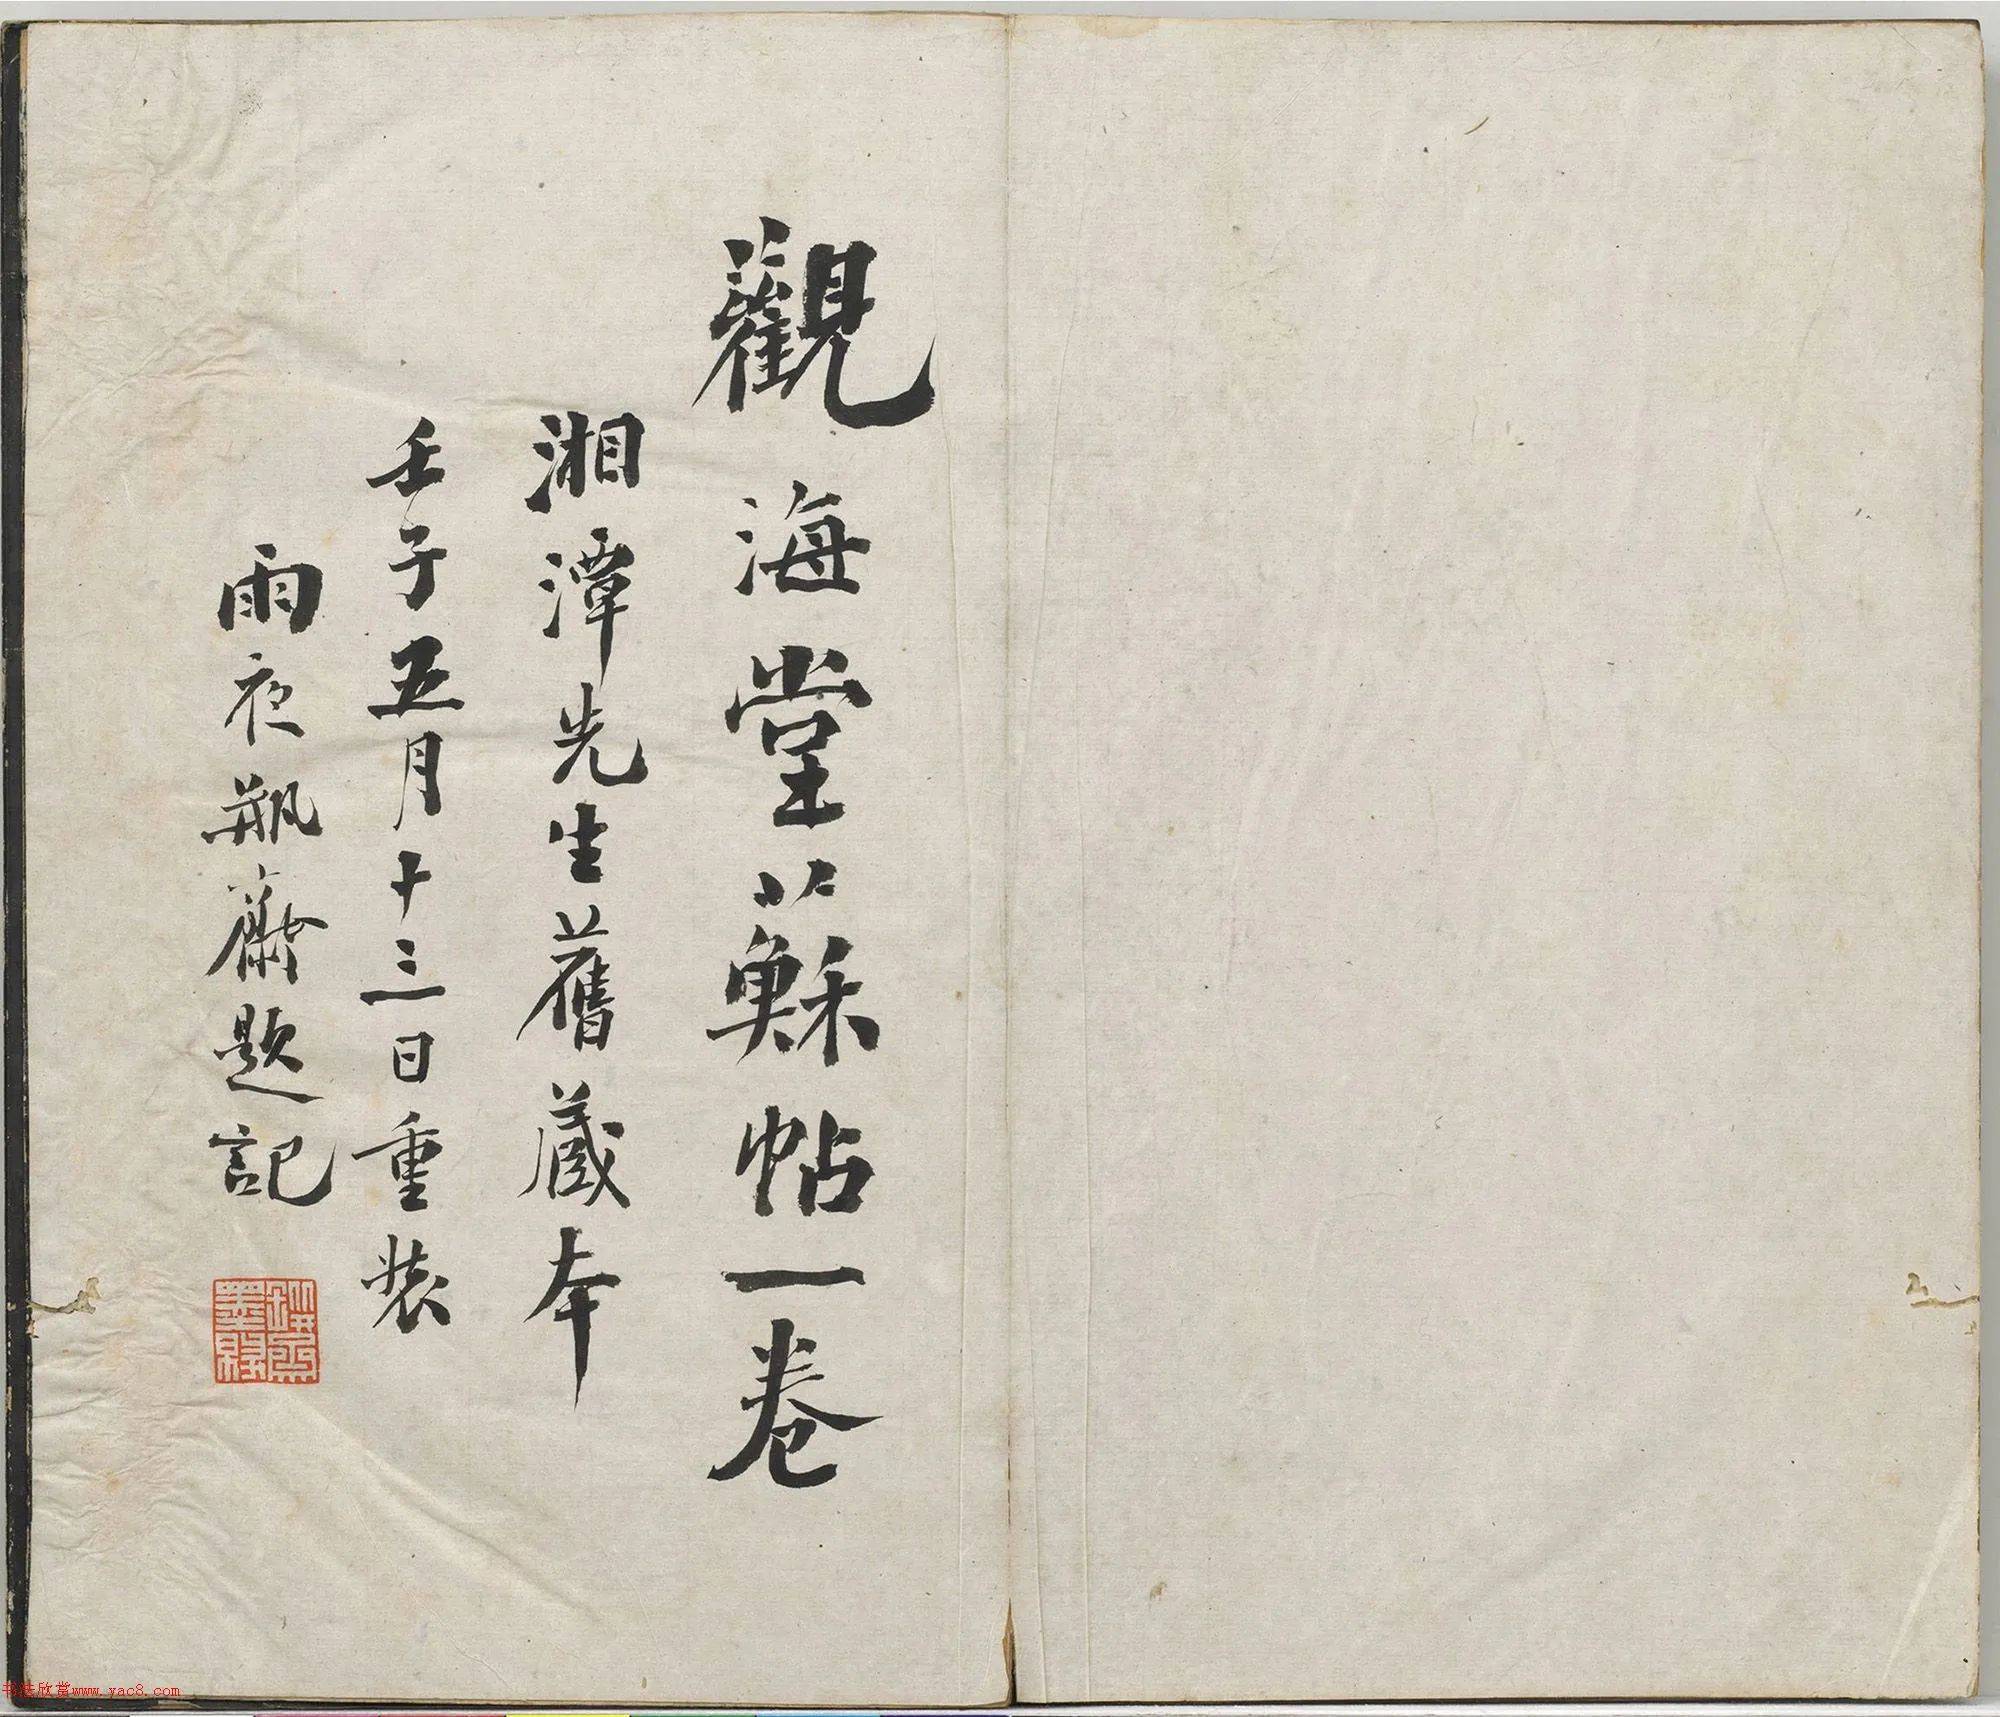 觀海堂蘇帖一卷
湘潭先生舊藏本
壬子五月十三日重裝
雨夜瓶齋題記
书法欣赏www.yac8.com